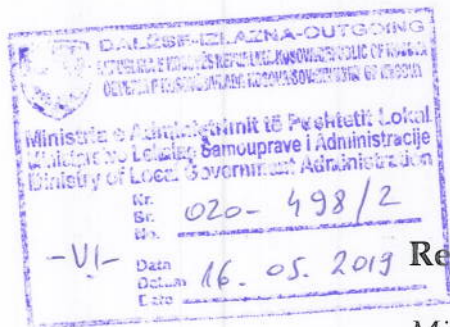 DALËSE-IZLAZNA-OUTGOING
Ministria e Administrimit të Pushtetit Lokal
Ministarstvo Lokalne Samouprave i Administracije
Ministry of Local Government Administration
Nr.
Br. 020- 498/2
No.
-VI- Data
Datum 16. 05. 2019 Re
Date
Mi